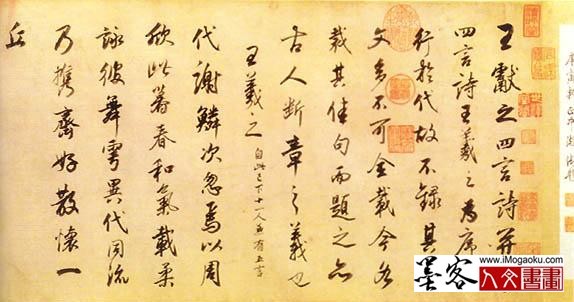 王獻之四言詩并
四言詩王羲之為序
行於代故不錄其
文多不可全載今各
裁其佳句而題之亦
古人斷章之義也
王羲之 自此已下十一人並有五言
代謝鱗次忽焉以周
欣此暮春和氣載柔
詠彼舞雩異代同流
乃攜齊好散懷一
丘
www.iMogaoku.com
墨客人文書畫